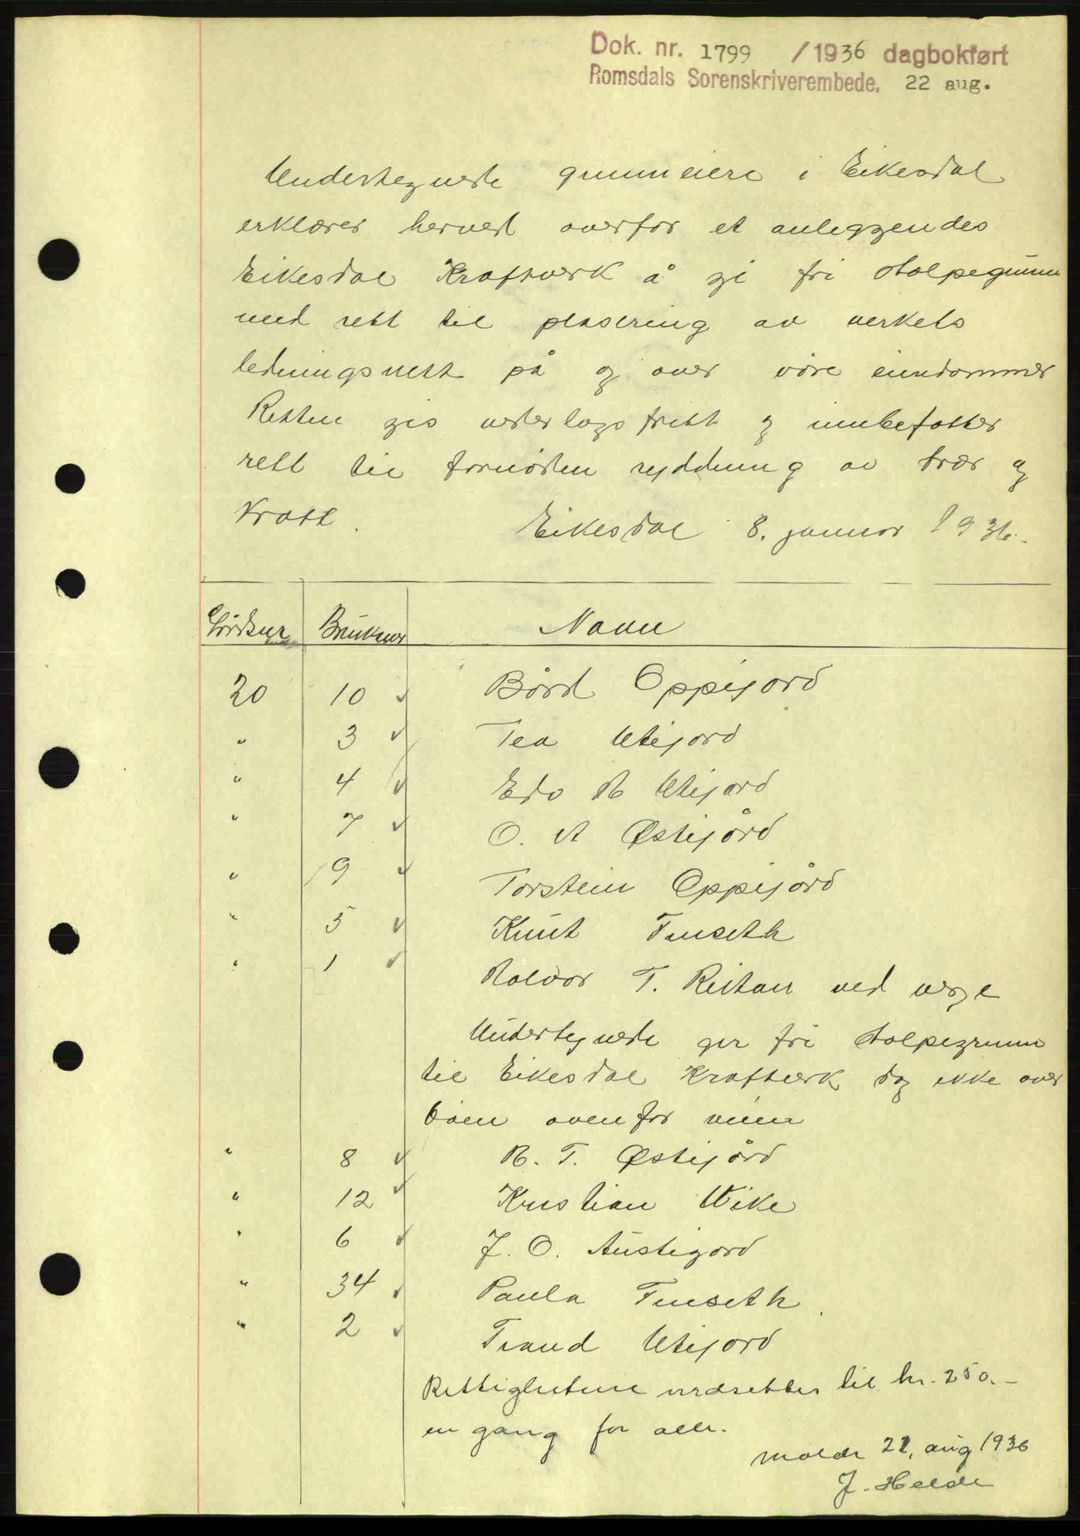 Dok. nr. 1799 /1936 dagbokført
Romsdals Sorenskriverembede. 22 aug.
Undertegnede grunneiere i Eikesdal
erklærer herved overfor et anleggendes
Eikesdal Kraftverk å gi fri stolpegrunn
med rett til plasering av verkets
ledningsnett på og over våre eiendommer
Retten gis vederlagsfritt og innbefatter
rett til fornøden ryddning av trær og
kratt. Eikesdal 8. januar 1936.
Gårdsnr Bruksnr Navn
20 10 Bård Oppigard
" 3 Tea Utigard
" 4 Edv R Utigard
" 7 O. A Østigård
" 9 Torstein Oppigård
" 5 Knut Finseth
" 1 Halvor T. Reitan ved verge
Undertegnede gir fri stolpegrunn
til Eikesdal Kraftverk dog ikke over
bøen ovenfor veien
" 8 R. T. Østigård
" 12 Kristian Wike
" 6 J. O. Austigard
" 34 Paula Finseth
" 2 Trond Utigard
Rettighetene verdsettes til kr. 250.-
en gang for alle.
Molde 22. aug 1936
J. Helde